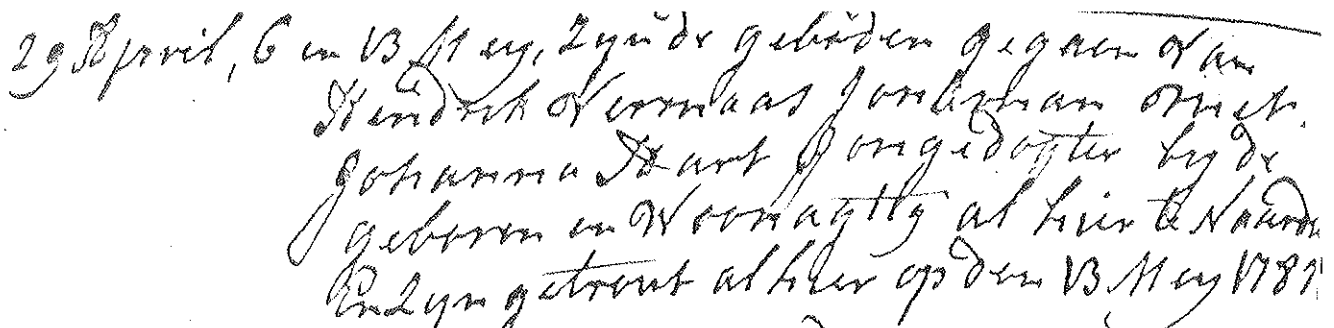 29 April, 6 en 13 Mey, Zyn de geboden gegaen Van
Hendrik Vermaas Jonkman met
Johanna Hart Jongedogter byde
geboren en Woonagtig al hier te Naarden
En Zyn getrout alhier op den 13 Mey 1781